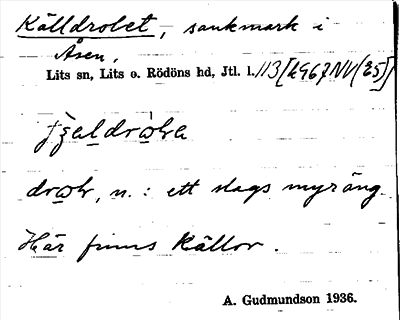 Källdrolet, sankmark i
Åsen,
Lits sn, Lits o. Rödöns hd, Jtl. l. 113 [4967NV(35)]
drɷlr, n. : ett slags myräng.
Här finns källor.
A. Gudmundson 1936.